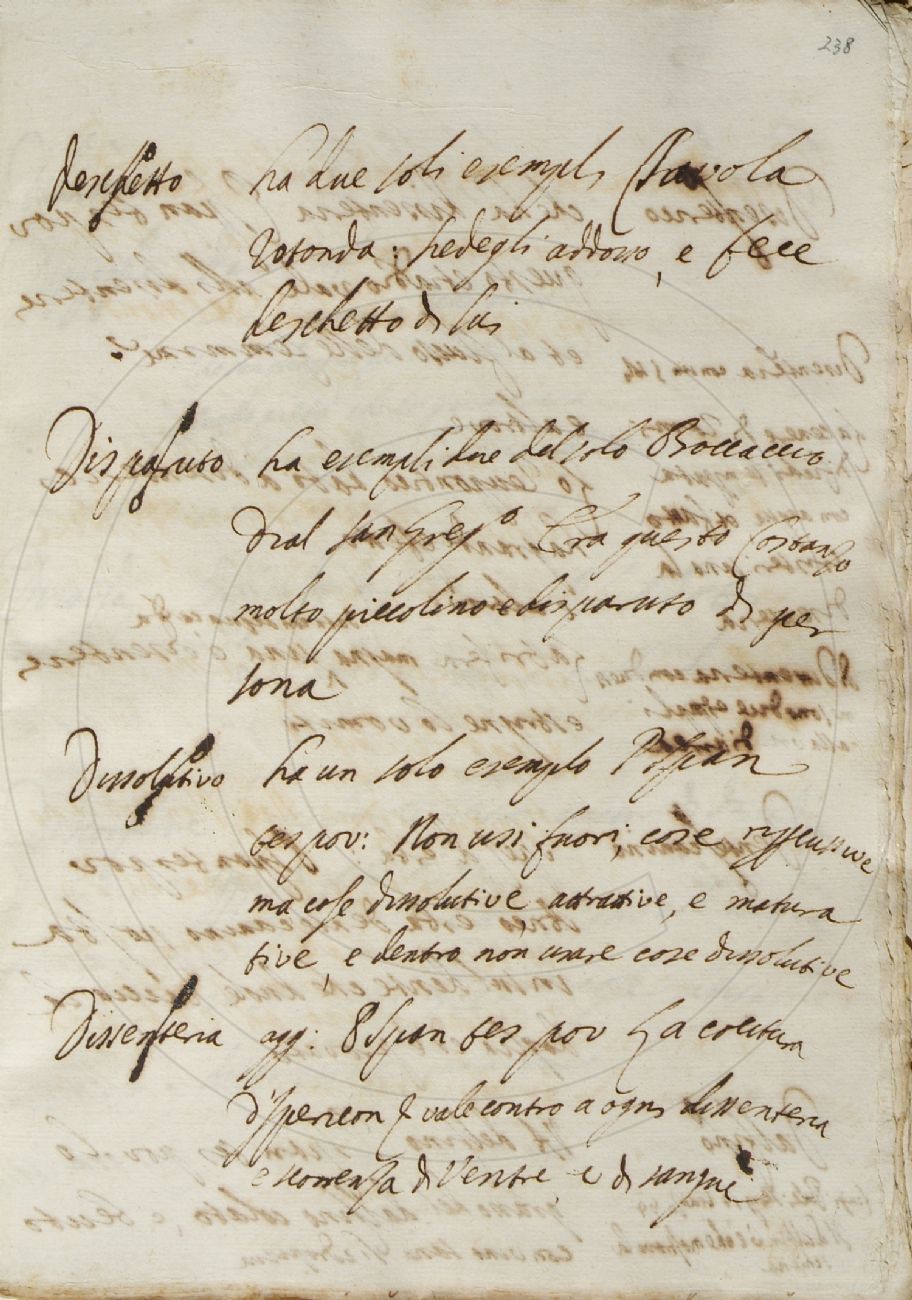 238
deschetto ha due soli esempli Tavola
rotonda: siedegli addosso, e fece
deschetto di lui
Disparuto ha esempli due del solo Boccaccio
Dial san Greg.o Era questo Costanzo
molto piccolino e disparuto di per
sona
Dissolutivo ha un solo esemplo P. Span
tes pov: Non usi fuori, cose
ma cose dissolutive, attrattive, e matura
tive, e dentro non usare cose dissolutive
Dissenteria agg: P Span tes pov La colatura
d'Ipericon vale contro a ogni dissenteria
e scorrenza di Ventre e di sangue